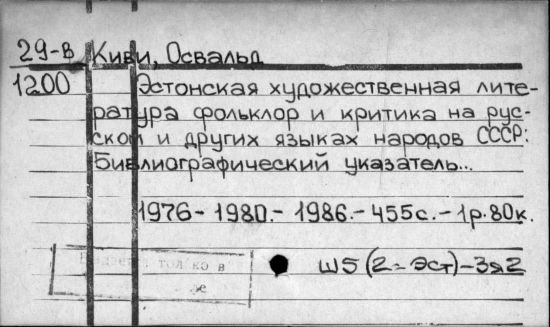 29-В Киви, Освальд
1200 Эстонская художественная лите-
ратура фольклор и критика на рус-
ском и других языках народов СССР:
Библиографический указатель...
1976 - 1980. - 1986. - 455с. - 1р. 80к.
Ш5 (2 = Эст) - 3я2
только в